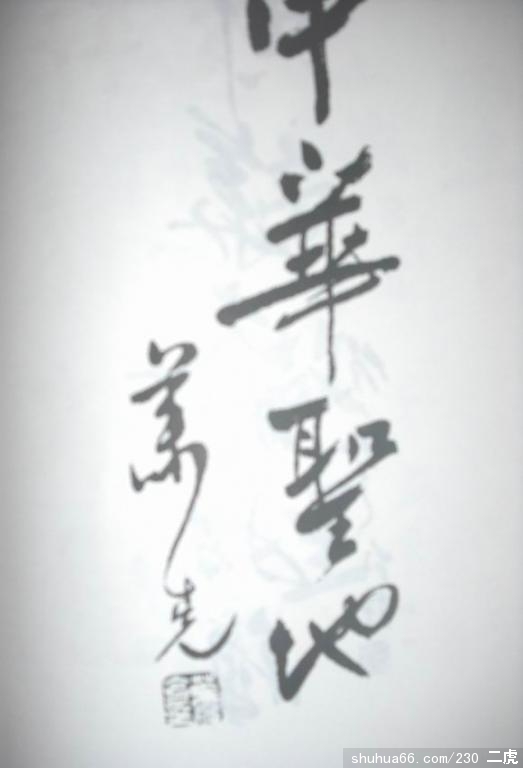 中華聖地
萧先
shuhua66.com/230 二虎